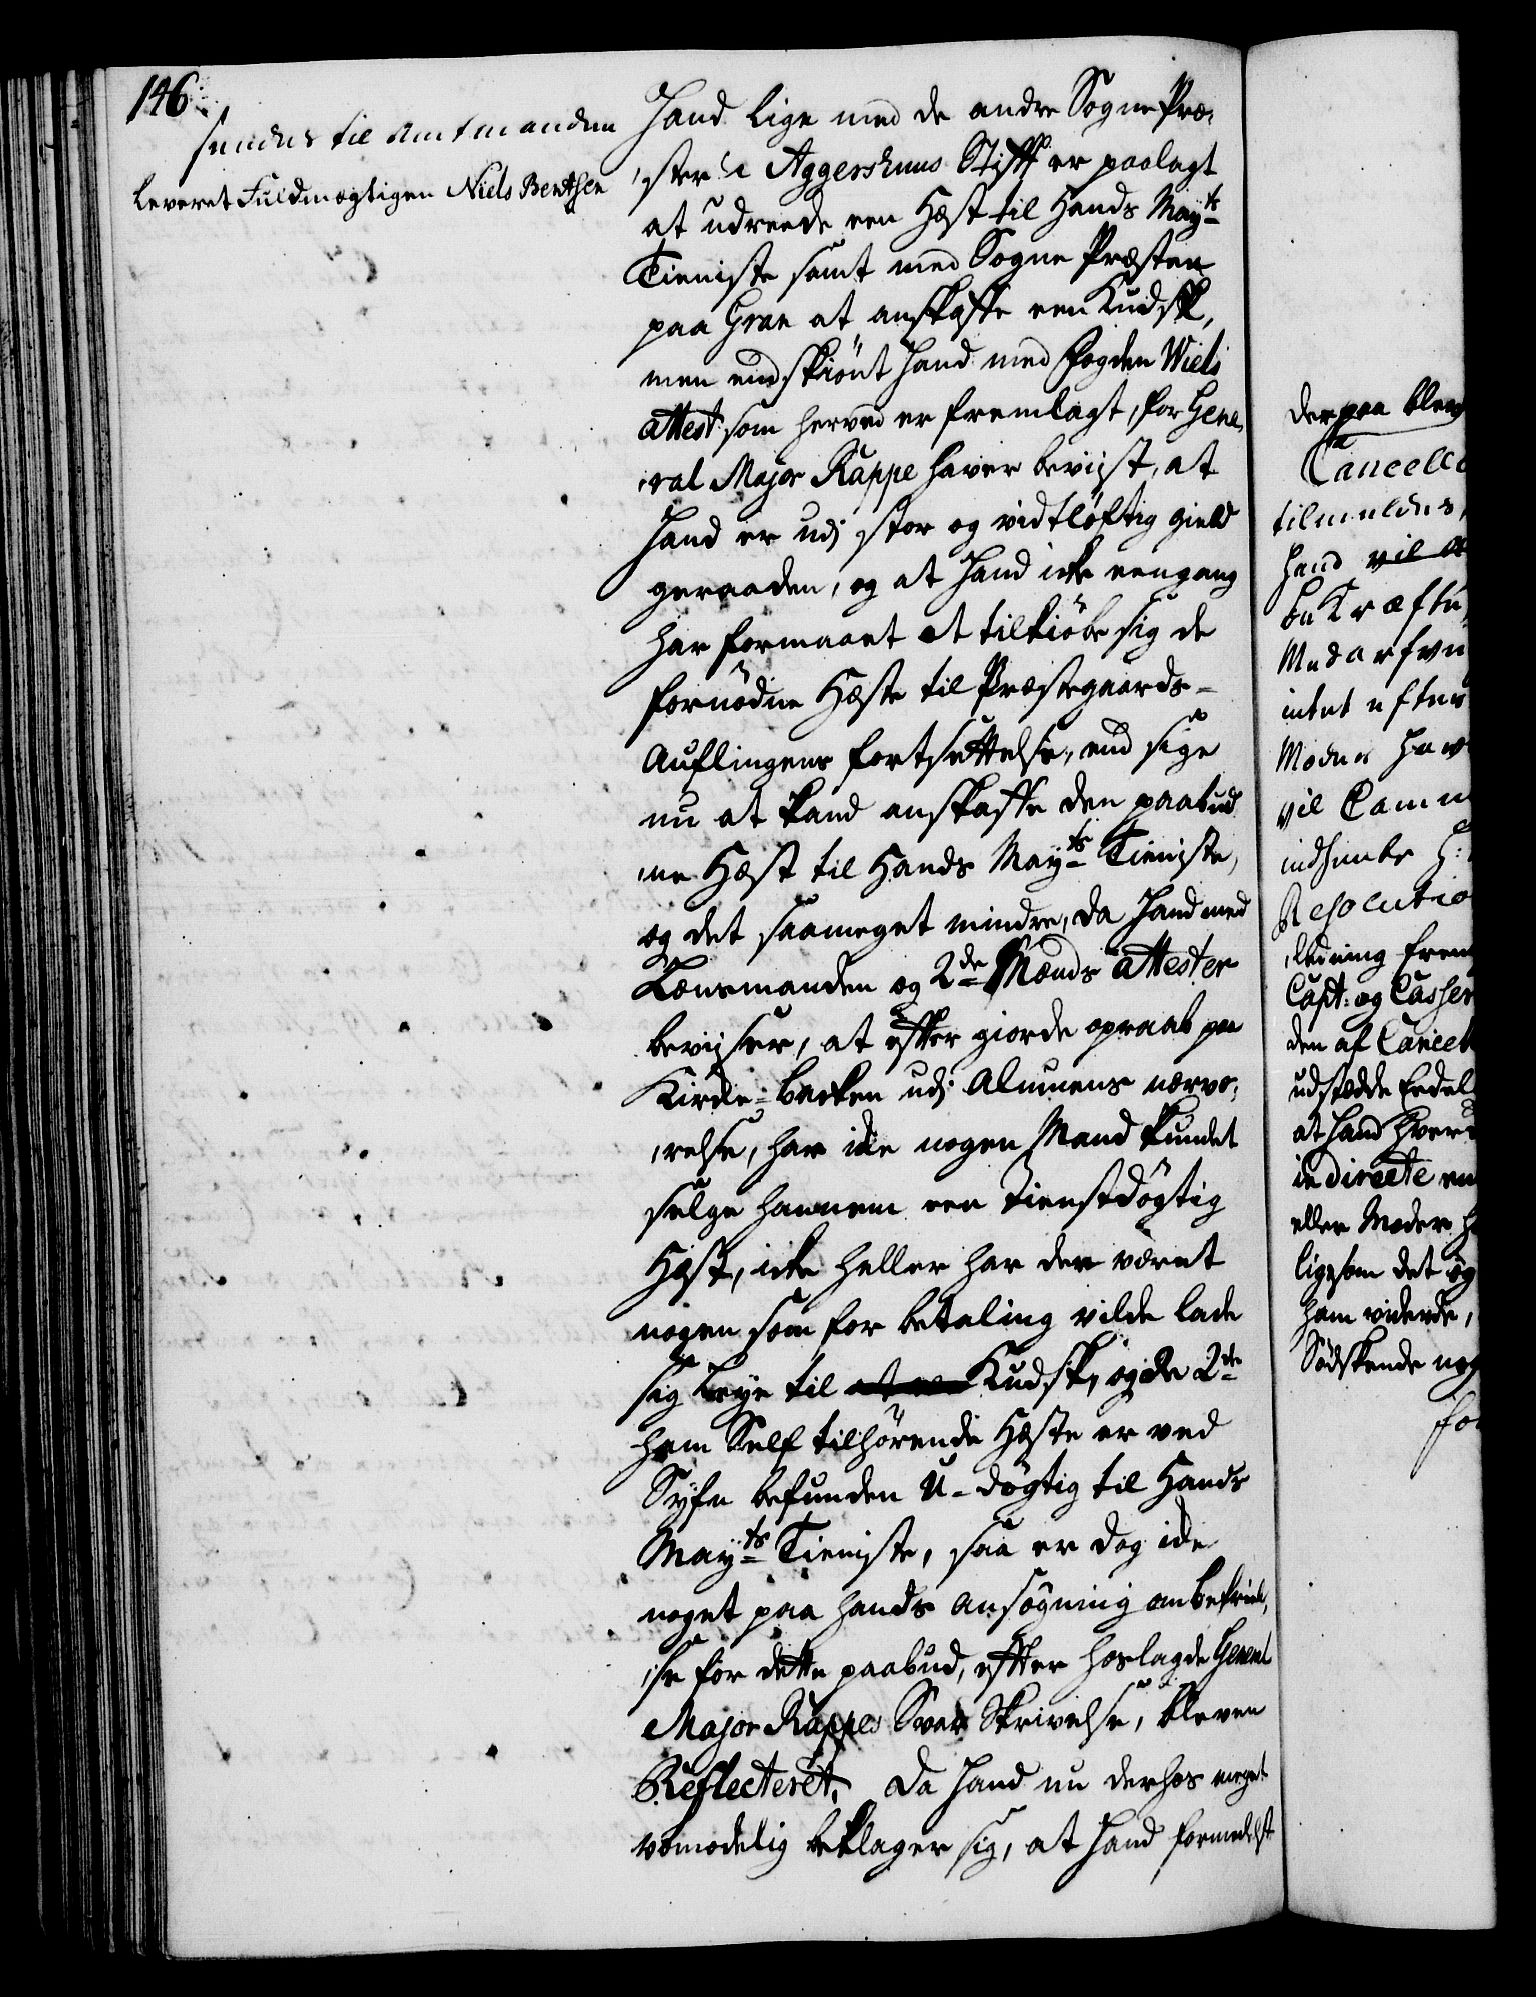 146.
sendes til Amtmanden
Leveret Fuldmægtigen Niels Benthsen
Hand lige med de andre Sogne Præ,
,ster i Aggershuus Stift er paalagt
at udreede een Hæst til Hands Mayts
Tieniste samt med Sogne Præsten
paa Gran at anskaffe een Kudsk,
men endskiönt Hand med Fogden Wiels
attest som herved er fremlagt, for Gene,
,ral Major Rappe haver beviist, at
Hand er udj stor og vidtløftig gield
geraaden, og at Hand icke eengang
har formaaet at tilkiöbe sig de
fornödne Hæste til Præstegaards-
Auflingens fortsættelse, end sige
nu at kand anskaffe den paabud
,ne Hæst til Hands Mayts Tieniste,
og det saameget mindre, da Hand med
Lænsmanden og 2de Mænds attester
beviiser, at efter giorde opraab paa
Kircke-backen udj Almuens nærvæ,
,relse, har icke nogen Mand kundet
sælge hannem een Tienstdögtig
Hæst, icke heller har der været
nogen som for betaling vilde lade
sig leye til Kudsk, og de 2de
ham Self tilhörende Hæste er ved
Syfn befunden U-dögtig til Hands
Mayts Tieniste, saa er dog icke
noget paa hands ansögning om befriel,
,se for dette paabud, efter hoslagde General
Major Rappes Svar Skrivelse, bleven
Reflecteret, Da Hand nu derhos meget
vemodelig beklager sig, at Hand formedelst
Derpaa blev
Cancelli
tilmeldes,
Hand vil
bekræfte,
intet efter
Moder hav
vil Comm
indhente H:
Resolutio
,ledning frem
Capt: og Casser
den af Cancel
udstædde Eedel
at Hand hver
indirecte en
eller Moder h
ligesom det og
ham viderde,
Sødskende nog
for